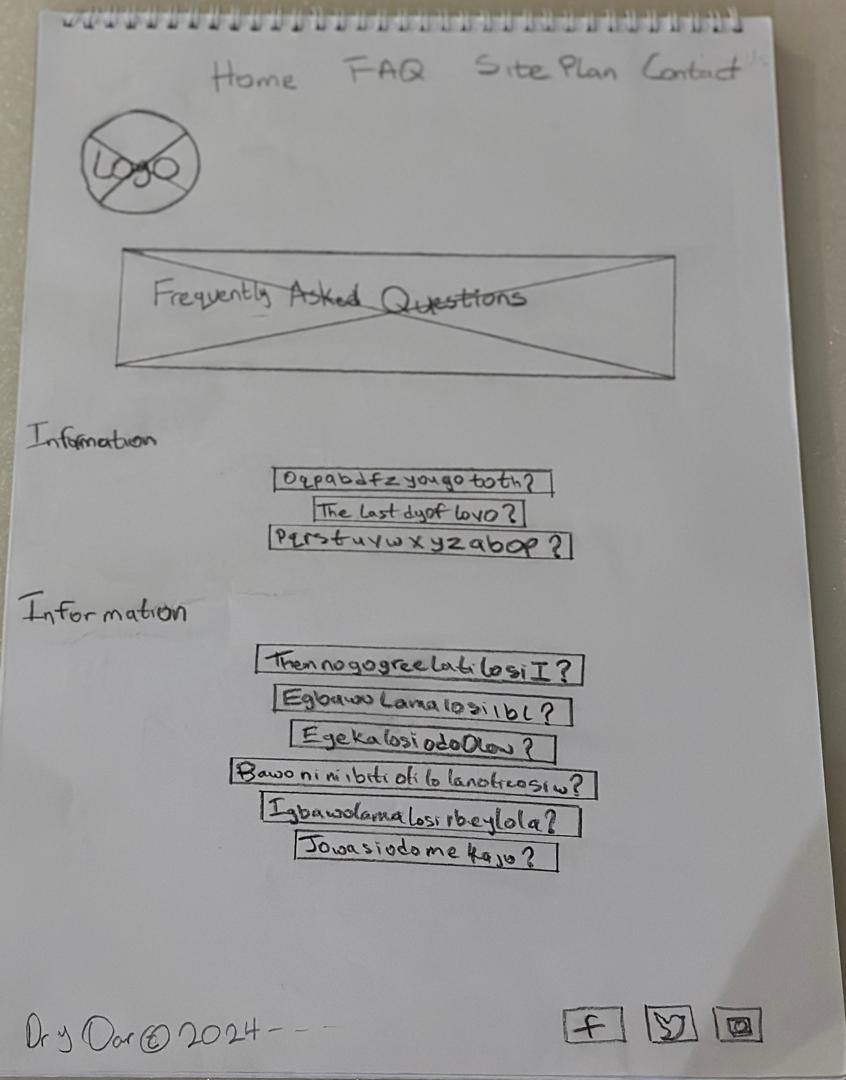 Home FAQ Site Plan Contact
Logo
Frequently Asked Questions
Information
Oqpabdfzyougototh?
The last dyof lovo?
Pqrstuvwxyzabop?
Information
Themnogogreelatilosi I?
Egbawo Lamalosi lbl?
Egekalosiodo
Bawoninibiti
Igbawolamalosi
Jowasiodomekajo?
Dry
© 2024---
f